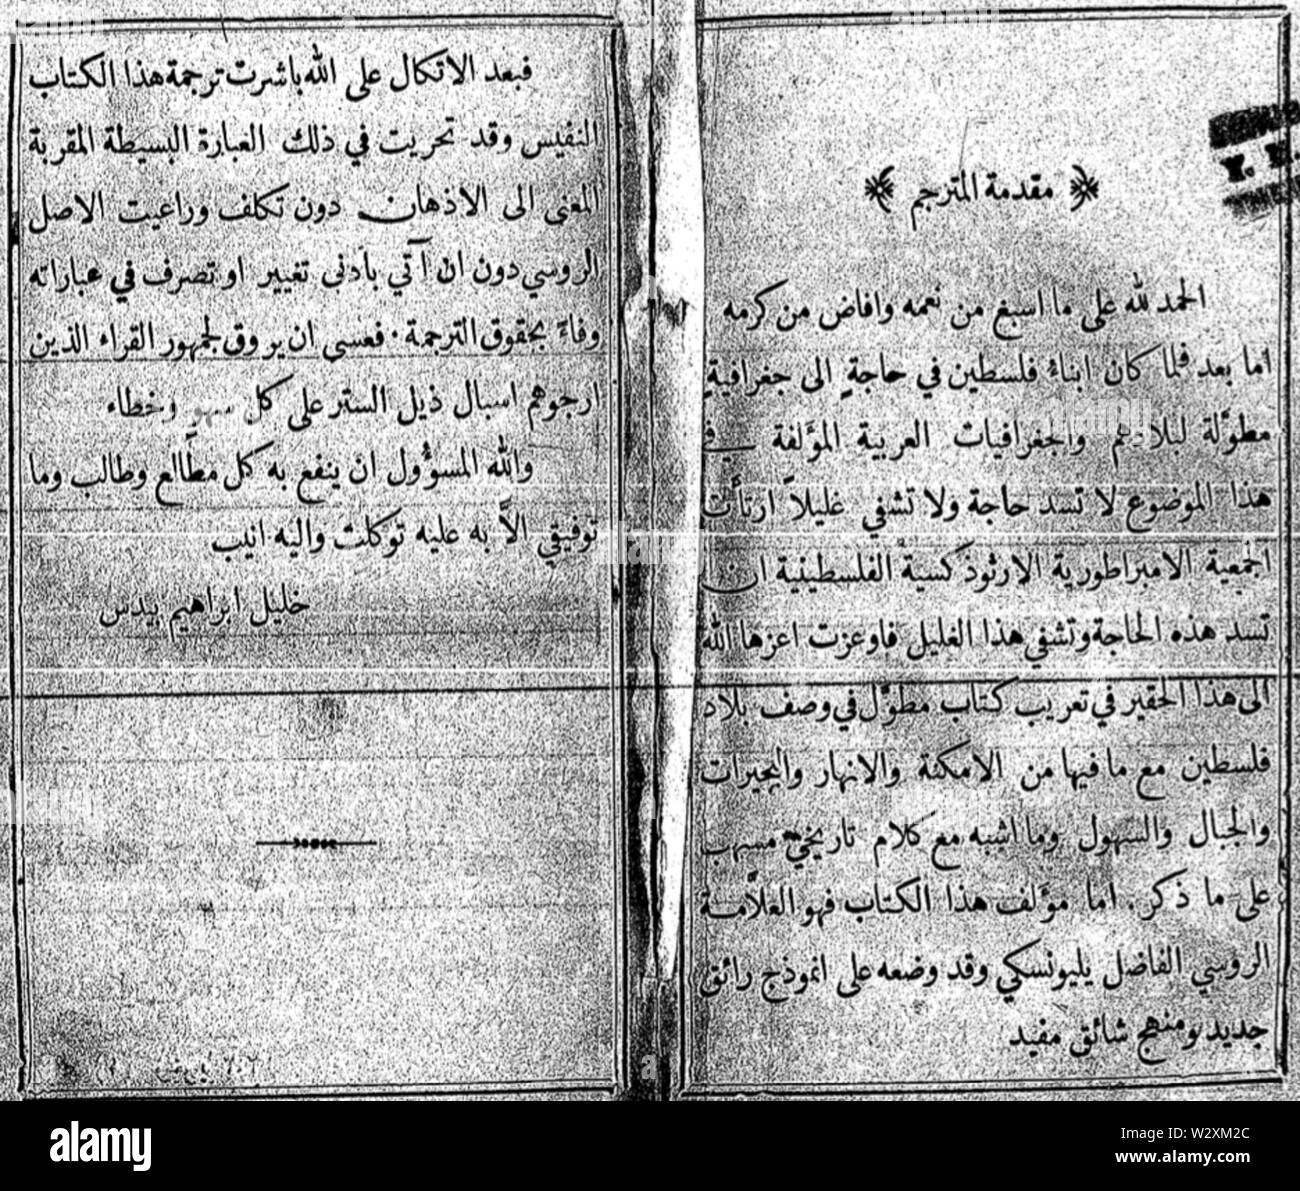 مقدمة المترجم
الحمد لله على ما اسبغ من نعمه وافاض من كرمه
اما بعد فلما كان ابناءُ فلسطين في حاجةٍ الى جغرافيةٍ
مطوَّلة لبلادهم والجغرافيات العربية المؤَلفة في
هذا الموضوع لا تسد حاجة ولا تشفي غليلاً ارتأَت
الجمعية الامبراطورية الارثوذكسية الفلسطينية ان
تسد هذه الحاجة وتشفي هذا الغليل فاوعزت اعزها الله
الى هذا الحقير في تعريب كتاب مطوَّل في وصف بلاد
فلسطين مع ما فيها من الامكنة والانهار والبحيرات
والجبال والسهول وما اشبه مع كلام تاريخي مسهب
على ما ذكر. اما مؤَلف هذا الكتاب فهو العلاَّمة
الروسي الفاضل يليونسكي وقد وضعه على انموذج رائق
جديد ومنهج شائق مفيد
فبعد الاتكال على الله باشرت ترجمة هذا الكتاب
النفيس وقد تحريت في ذلك العبارة البسيطة المقربة
المعنى الى الاذهان دون تكلف وراعيت الاصل
الروسي دون ان آتي بأدنى تغيير او تصرف في عباراته
وفاءً بحقوق الترجمة. فعسى ان يروق لجمهور القراء الذين
ارجوهم اسبال ذيل الستر على كل سهو وخطاء
والله المسؤُول ان ينفع به كل مطالع وطالب وما
توفيقي الاَّ به عليه توكلت واليه انيب
خليل ابراهيم بيدس
alamy
Image ID: W2XM2C
www.alamy.com